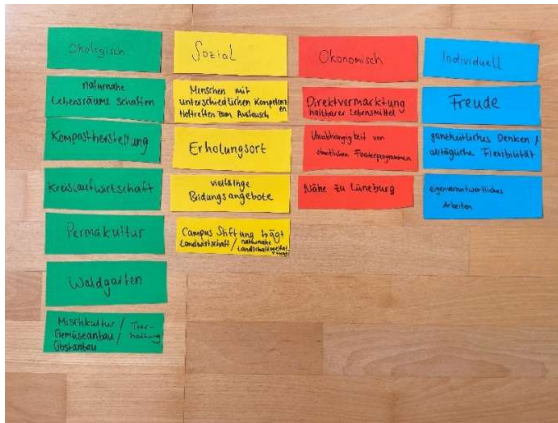 Ökologisch
naturnahe
Lebensräume schaffen
Kompostherstellung
Kreislaufwirtschaft
Permakultur
Waldgarten
Mischkultur / Tier-
Gemüseanbau / haltung
Obstanbau
Sozial
Menschen mit
unterschiedlichen Kompetenzen
treffen zum Austausch
Erholungsort
vielfältige
Bildungsangebote
Campus Stiftung trägt
Landwirtschaft / naturnahe
Ökonomisch
Direktvermarktung
haltbarer Lebensmittel
Unabhängigkeit von
staatlichen Förderprogrammen
Nähe zu Lüneburg
Individuell
Freude
ganzheitliches Denken /
alltägliche Flexibilität
eigenverantwortliches
Arbeiten